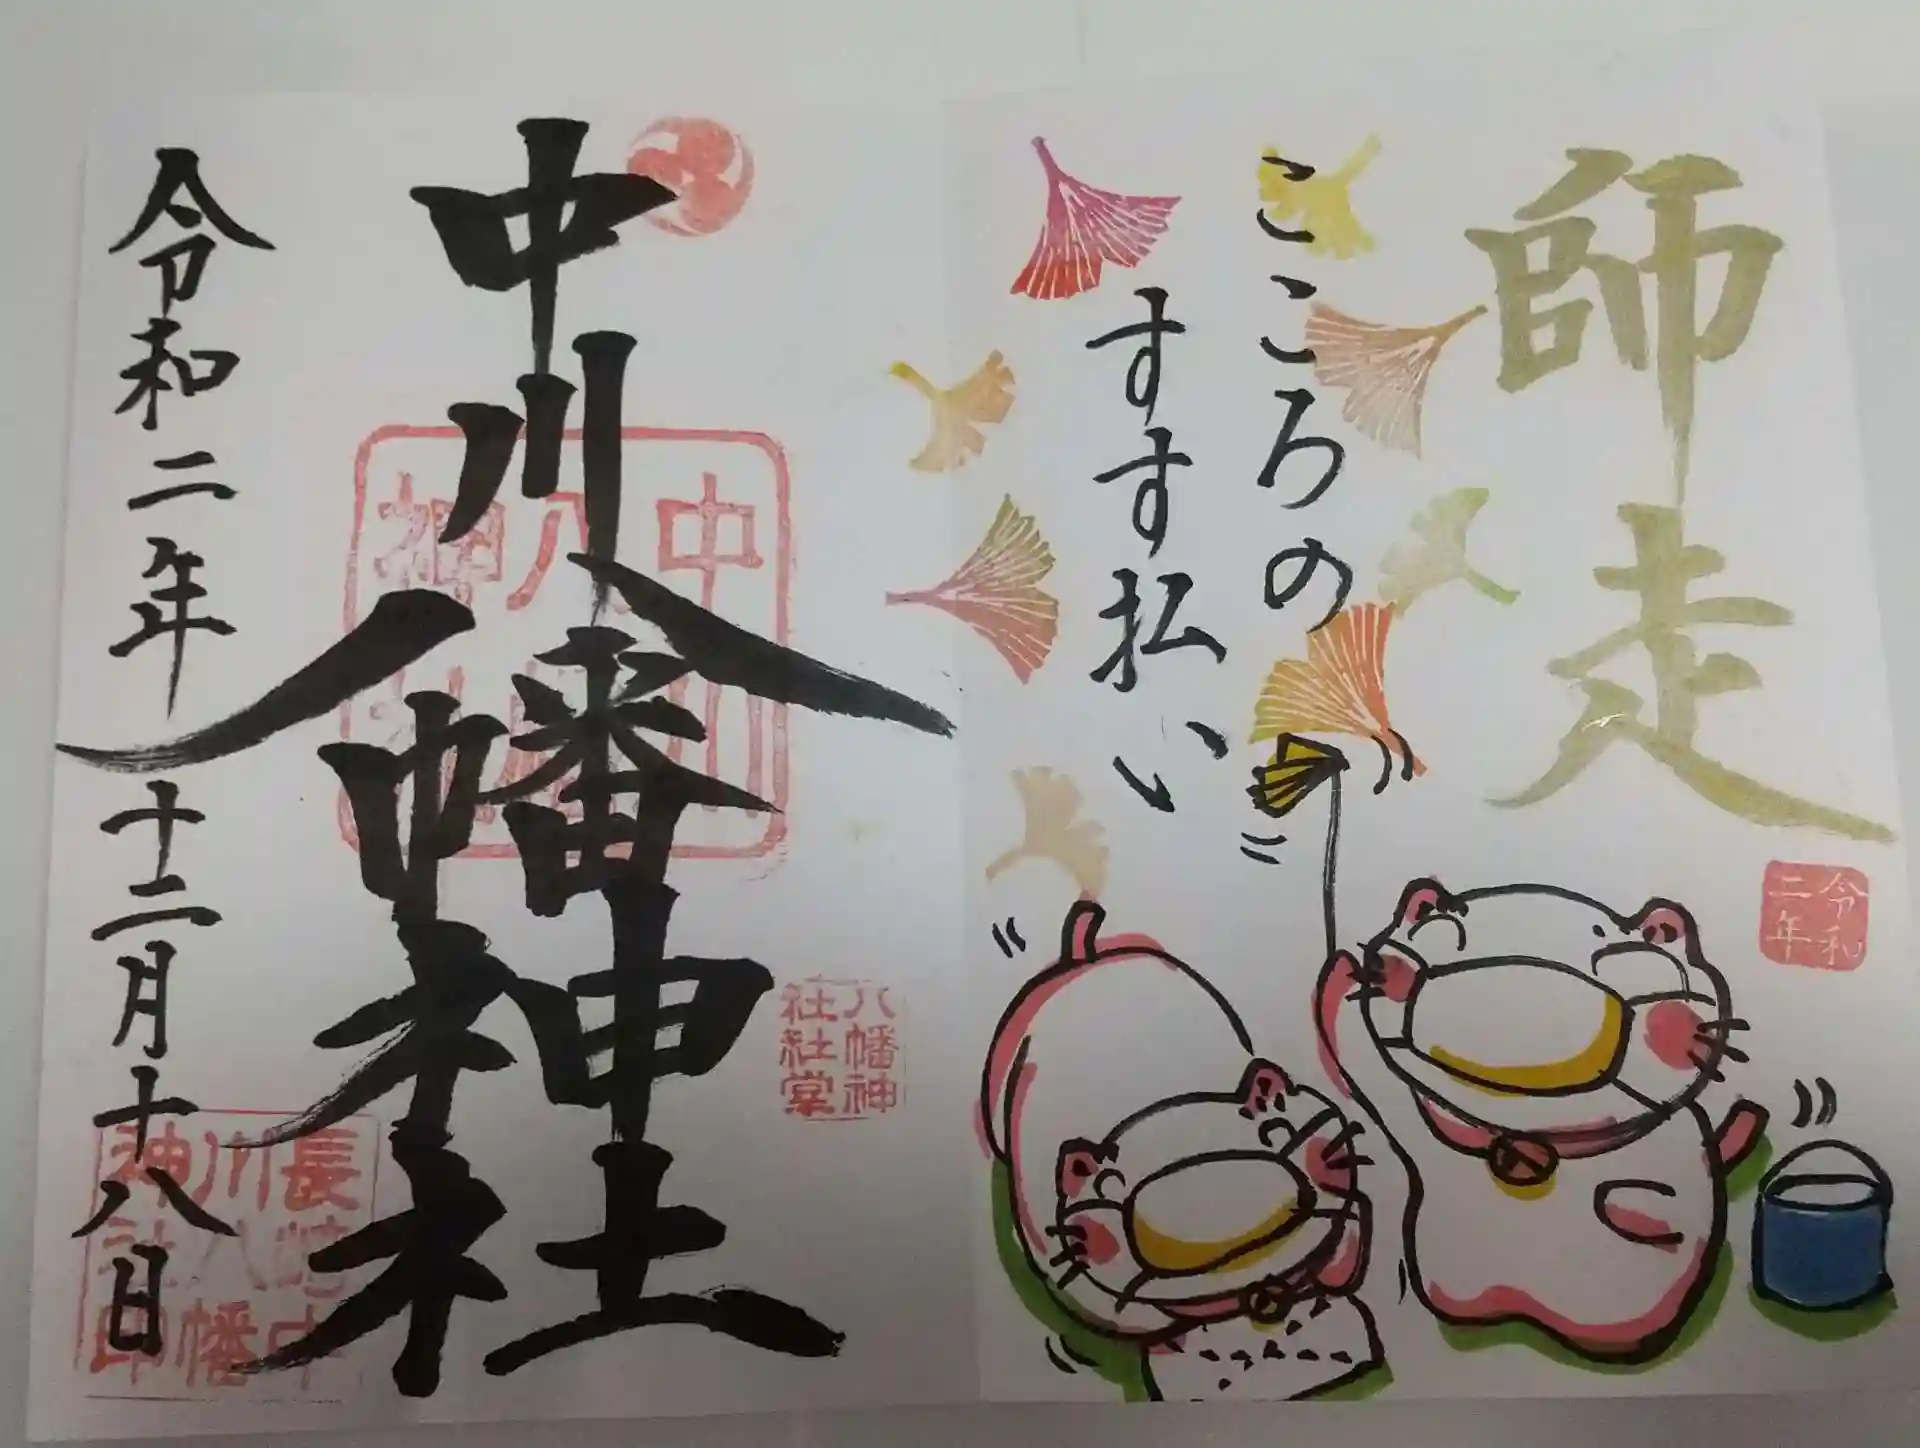 師走
こころの
すす払い
令和
二年
中川八幡神社
中川
八幡
神社
八幡神
社社掌
長崎中
川八幡
神社印
令和二年十二月十八日